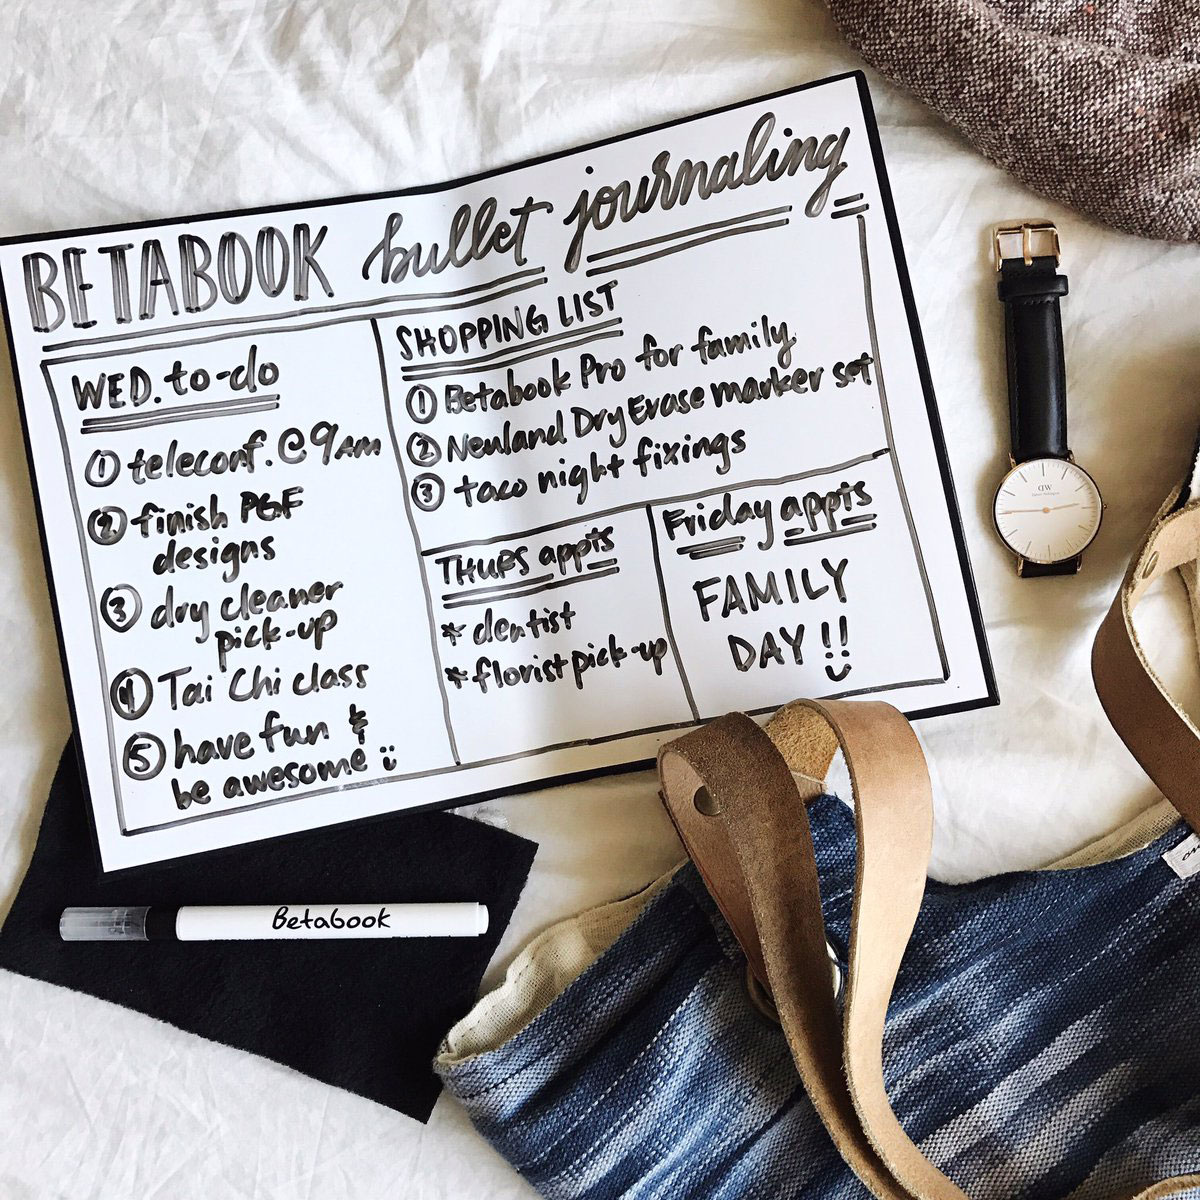 BETABOOK bullet journaling
WED. to-do
① teleconf. @ 9AM
② finish PGF
designs
③ dry cleaner
pick-up
④ Tai Chi class
⑤ have fun &
be awesome :)
SHOPPING LIST
① Betabook Pro for family
② Neuland DryErase marker set
③ taco night fixings
THURS appts
* dentist
* florist pick-up
Friday appts
FAMILY
DAY !!
Betabook
DW